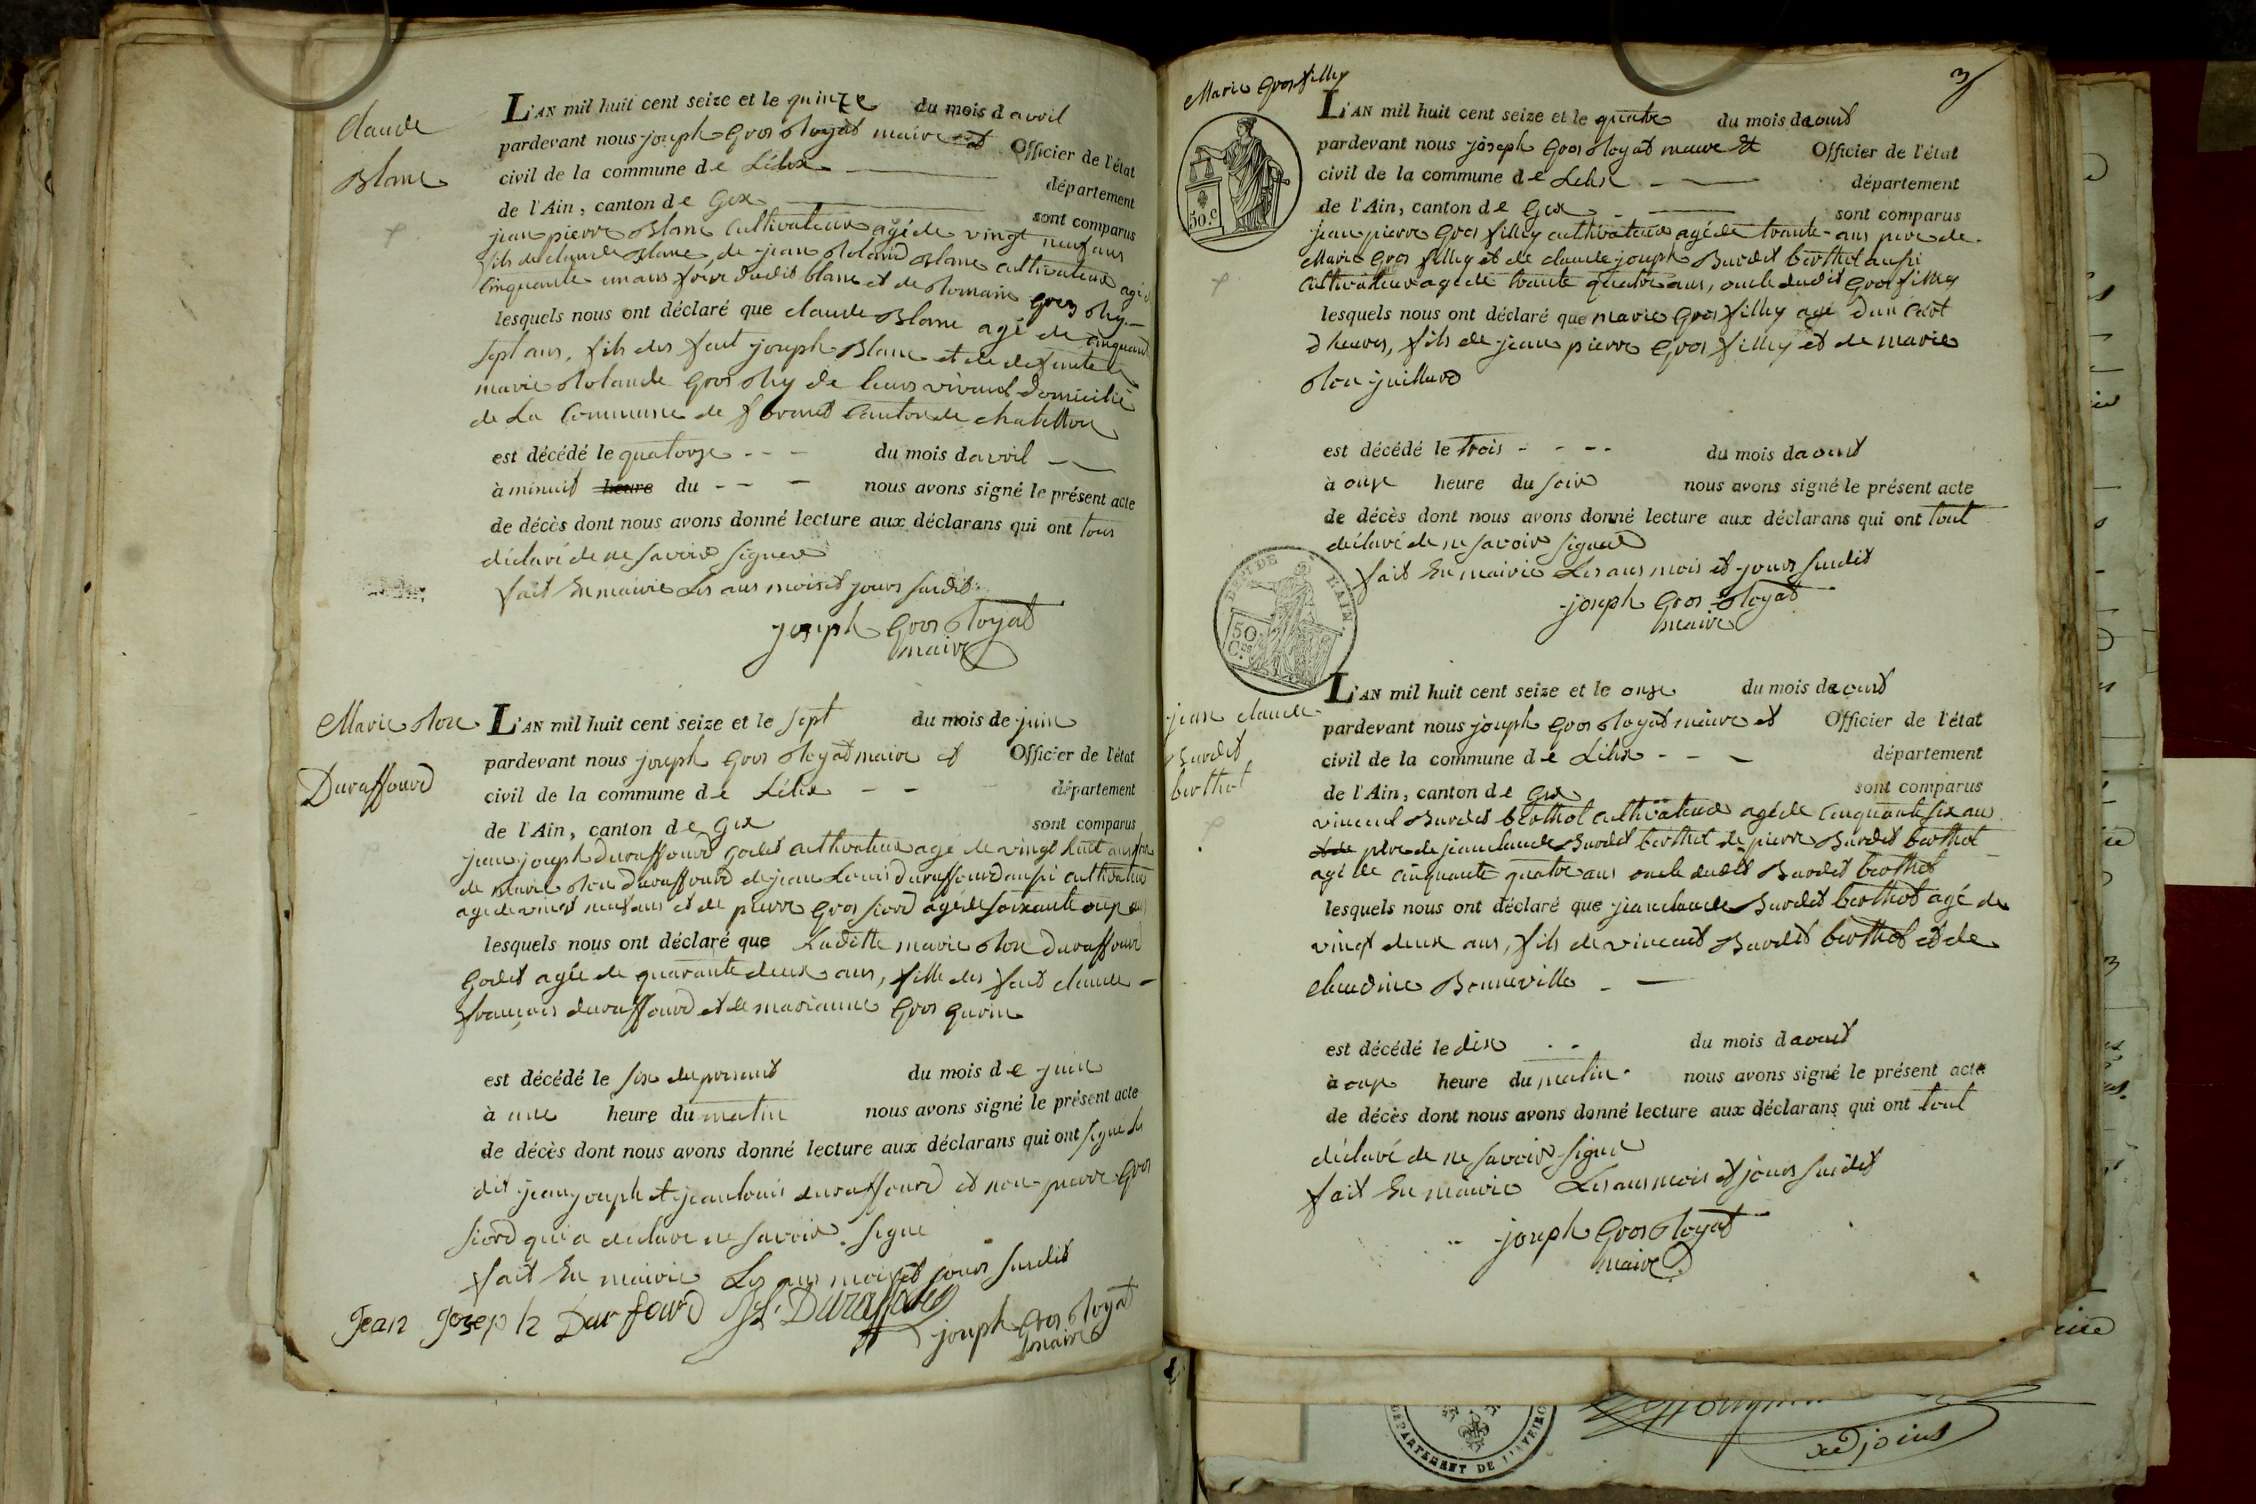 Claude
Blanc
L'AN mil huit cent seize et le quinze du mois d avril
pardevant nous joseph Gros Royat maire et Officier de l'état
civil de la commune de Lélex département
de l'Ain, canton de Gex sont comparus
jean pierre Blanc Cultivateur agé de vingt neuf ans
fils de claude Blanc, de jean Roland Blanc cultivateur agé d
Cinquante un ans frère dudit blanc et de Romain Gros
lesquels nous ont déclaré que claude Blanc agé de cinquant
sept ans, fils des feut joseph Blanc et de defunte
marie Rolande Gros de leurs vivant Domicilié
de La Commune de forens Canton de chatillon
est décédé le quatorze - - - du mois davril
à minuit heure du - - - nous avons signé le présent acte
de décès dont nous avons donné lecture aux déclarans qui ont tous
déclaré de ne savoir signer
fait En mairie Les ans mois et jours susdit
joseph Gros Royat
maire
Marie Rose
Duraffourd
L'AN mil huit cent seize et le sept du mois de juin
pardevant nous joseph Gros Royat maire et Officier de l'état
civil de la commune de Lélex - - département
de l'Ain, canton de Gex sont comparus
jean joseph Duraffourd Godet cultivateur agé de vingt huit ans
de marie Rose Duraffourd de jean Louis Duraffourd aussi cultivateur
agé de vingt neuf ans et de pierre Gros fiord agé de soixante onze ans
lesquels nous ont déclaré que Laditte marie Rose Duraffourd
Godet agée de quarante deux ans, fille des feut claude -
françois duraffourd et de marianne Gros Gurin
est décédé le six du présent du mois de juin
à une heure du matin nous avons signé le présent acte
de décès dont nous avons donné lecture aux déclarans qui ont signé les
dit jean joseph et jean louis duraffourd et non pierre Gros
fiord qui a déclaré ne savoir signé
fait En mairie Les ans mois et jours susdit
Jean Joseph Durfourd JL Duraffourd
joseph Gros Royat
maire
3
Marie Grosfilley
50.c
L'AN mil huit cent seize et le quatre du mois daout
pardevant nous joseph Gros Royat maire et Officier de l'état
civil de la commune de Lélex département
de l'Ain, canton de Gex sont comparus
jean pierre Gros filley cultivateur agé de trante ans père de
Marie Gros filley et de claude joseph Burdet berthet aussi
cultivateur agé de trante quatre ans, oncle dudit Gros filley
lesquels nous ont déclaré que marie Gros filley agé dun cart
dheures, fils de jean pierre Gros filley et de marie
Rose juillard
est décédé le trois - - - - du mois daout
à onze heure du soir nous avons signé le présent acte
de décès dont nous avons donné lecture aux déclarans qui ont tout
déclaré de ne savoir signer
fait En mairie Les ans mois et jours susdit
joseph Gros Royat
maire
DÉPT DE L'AIN.
50
C.es
jean claude
Burdet
berthet
L'AN mil huit cent seize et le onze du mois daout
pardevant nous joseph Gros Royat maire et Officier de l'état
civil de la commune de Lélex - - - département
de l'Ain, canton de Gex sont comparus
vincent Burdet berthet cultivateur agé de cinquante six ans
père de jean claude Burdet berthet de pierre Burdet berthet
agé de cinquante quatre ans oncle dudit Burdet berthet
lesquels nous ont déclaré que jean claude Burdet berthet agé de
vingt deux ans, fils de vincent Burdet berthet et de
claudine Benneville
est décédé le dix - - du mois daout
à onze heure du matin nous avons signé le présent acte
de décès dont nous avons donné lecture aux déclarans qui ont tout
déclaré de ne savoir signé
fait En mairie Les ans mois et jours susdit
joseph Gros Royat
maire
DÉPARTEMENT DE L'AVEYRON
adjoint